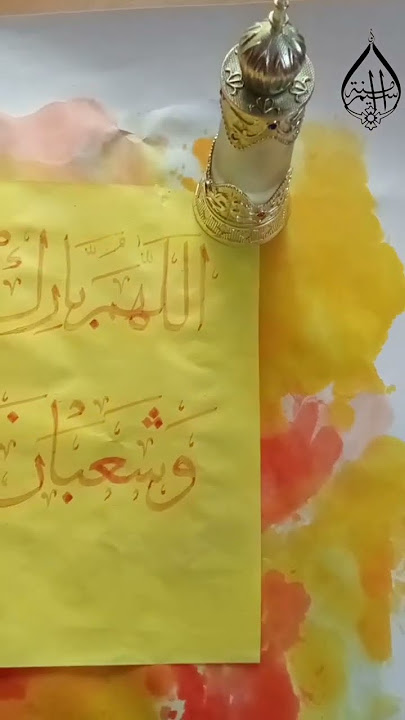 اللَّهُمَّ بَارِكْ
وَشَعْبَانَ